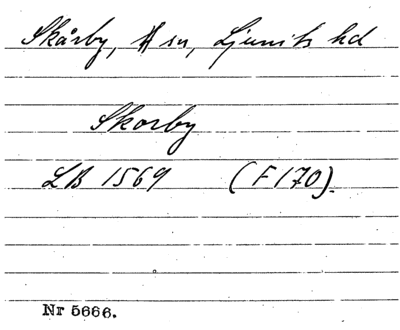 Skårby, # sn, Ljunits hd
Skorby
LB 1569 (F170).
Nr 5666.